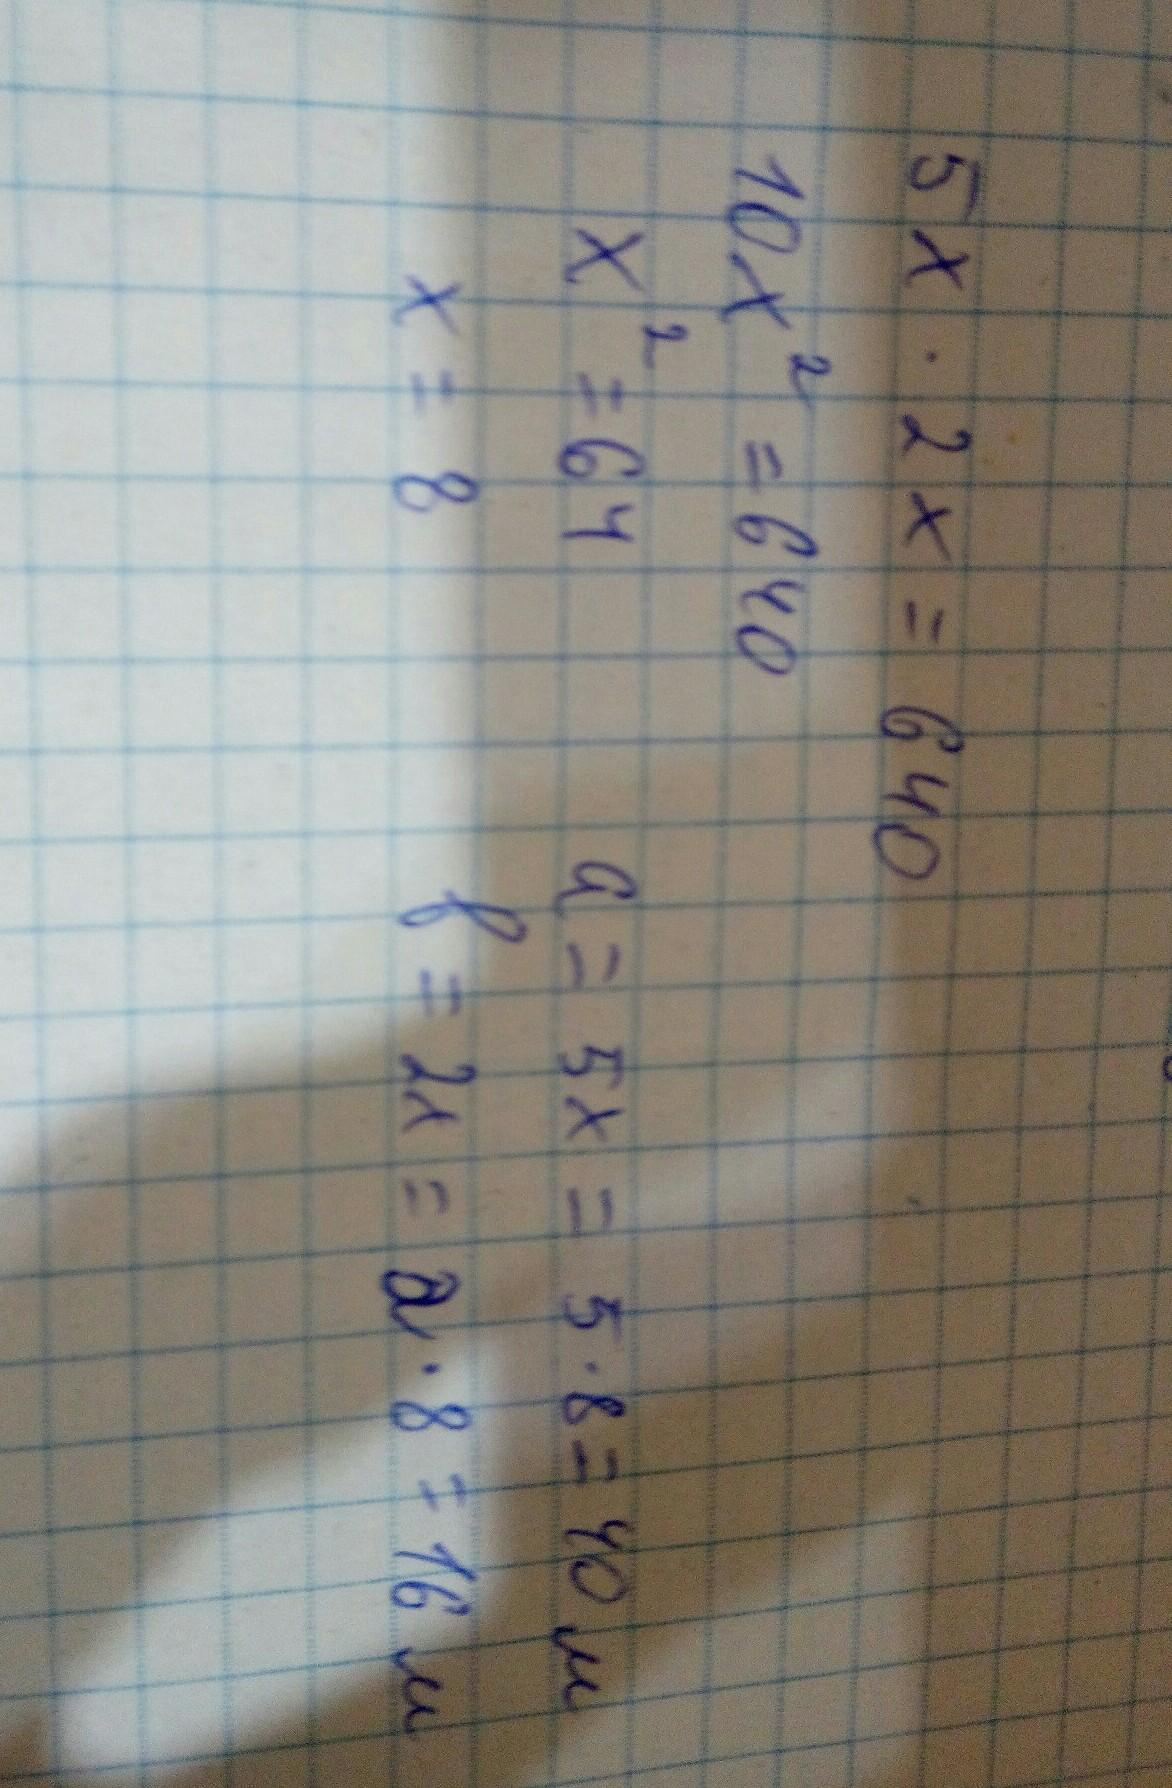 5x · 2x = 640
10x² = 640
x² = 64
x = 8
a = 5x = 5 · 8 = 40 м
b = 2x = 2 · 8 = 16 м